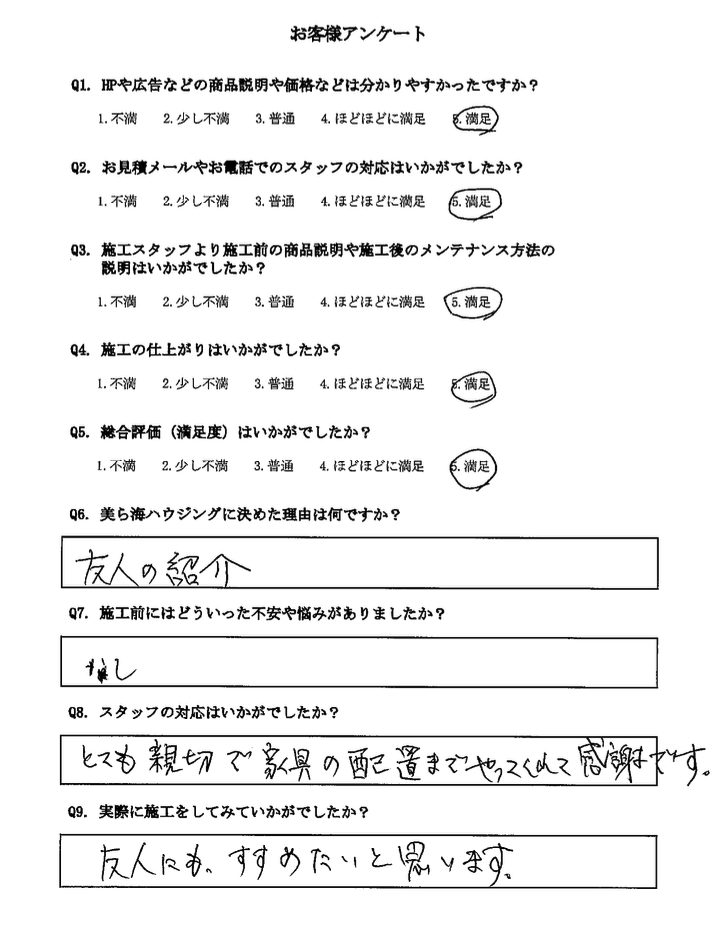 お客様アンケート
Q1. HPや広告などの商品説明や価格などは分かりやすかったですか？
1.不満 2.少し不満 3.普通 4.ほどほどに満足 5.満足
Q2. お見積メールやお電話でのスタッフの対応はいかがでしたか？
1.不満 2.少し不満 3.普通 4.ほどほどに満足 5.満足
Q3. 施工スタッフより施工前の商品説明や施工後のメンテナンス方法の
説明はいかがでしたか？
1.不満 2.少し不満 3.普通 4.ほどほどに満足 5.満足
Q4. 施工の仕上がりはいかがでしたか？
1.不満 2.少し不満 3.普通 4.ほどほどに満足 5.満足
Q5. 総合評価（満足度）はいかがでしたか？
1.不満 2.少し不満 3.普通 4.ほどほどに満足 5.満足
Q6. 美ら海ハウジングに決めた理由は何ですか？
友人の紹介
Q7. 施工前にはどういった不安や悩みがありましたか？
無し
Q8. スタッフの対応はいかがでしたか？
とても親切で家具の配置までやってくれて感謝です。
Q9. 実際に施工をしてみていかがでしたか？
友人にも、すすめたいと思います。